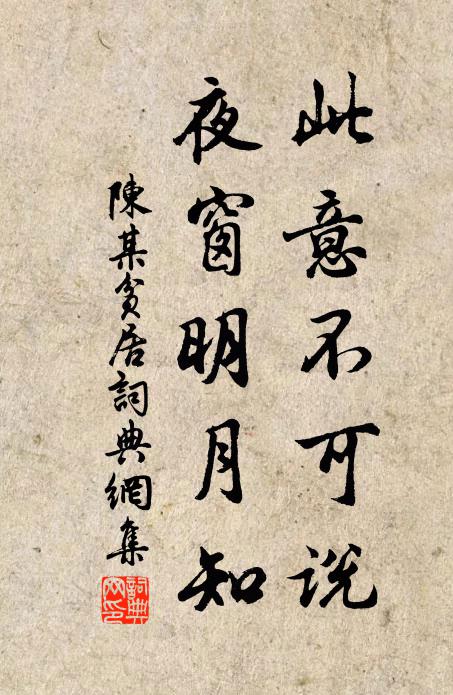 此意不可说
夜窗明月知
陳某貧居詞典網集
詞典
网印